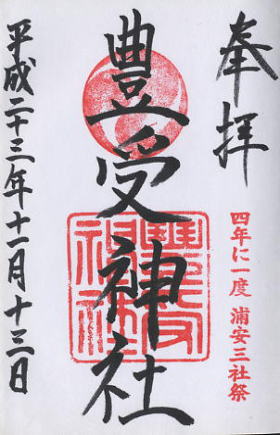 奉拝
四年に一度 浦安三社祭
豊受神社
平成二十三年十一月十三日